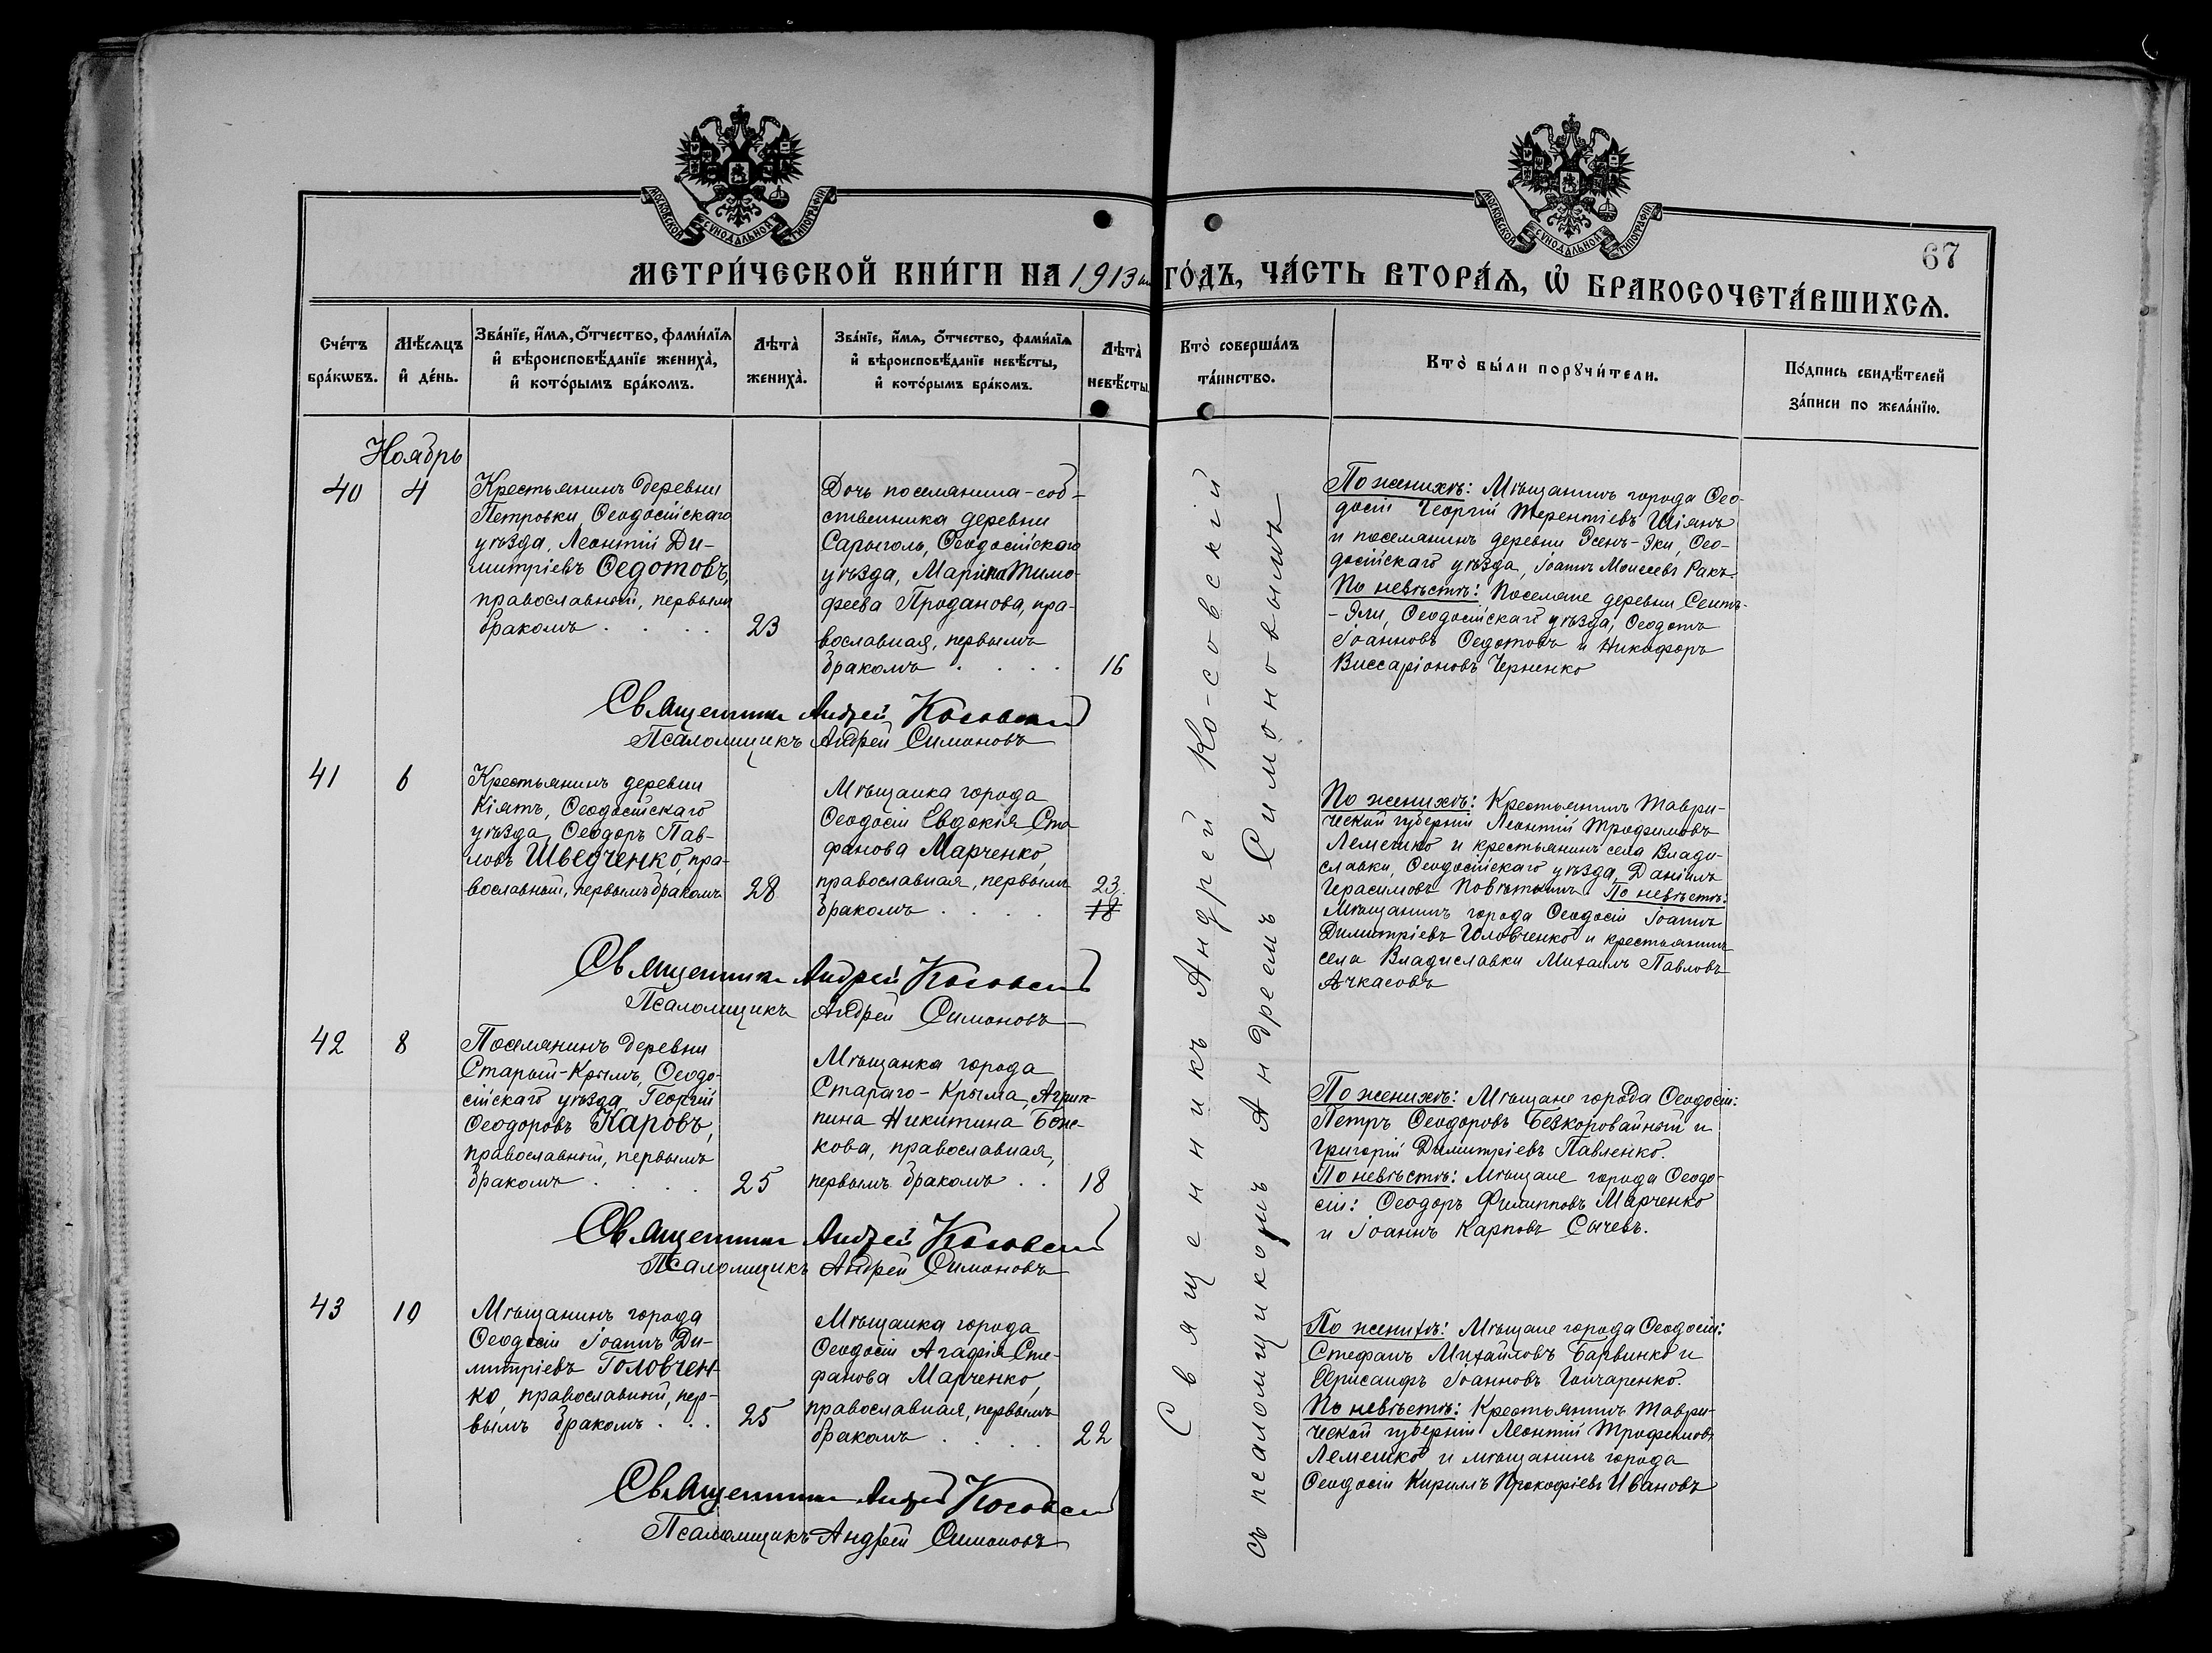 МОСКОВСКОЙ СѴНОДАЛЬНОЙ ТИПОГРАФІИ
МОСКОВСКОЙ СѴНОДАЛЬНОЙ ТИПОГРАФІИ
67
МЕТРИ́ЧЕСКОЙ КНИ́ГИ НА 1913 ГО́ДЪ, ЧА́СТЬ ВТОРА́Ѧ, Ѡ҆ БРАКОСОЧЕТА́ВШИХСѦ.
Сче́тъ
бра́кѡвъ.
Мѣ́сѧцъ
и҆ де́нь.
Зва́нїе, и҆́мѧ, ѻ҆́тчество, фами́лїѧ
и҆ вѣроисповѣ́данїе жениха̀,
и҆ кото́рымъ бра́комъ.
Лѣта̀
жениха̀.
Зва́нїе, и҆́мѧ, ѻ҆́тчество, фами́лїѧ
и҆ вѣроисповѣ́данїе невѣ́сты,
и҆ кото́рымъ бра́комъ.
Лѣта̀
невѣ́сты.
Кто̀ соверша́лъ
та́инство.
Кто̀ бы́ли порꙋчи́тели.
По́дпись свидѣ́телей
за́писи по жела́нїю.
Ноябрь
40
4
Крестьянинъ деревни
Петровки, Ѳеодосійскаго
уѣзда, Леонтій Ди-
митріевъ Ѳедотовъ,
православный, первымъ
бракомъ . . . .
23
Дочь поселянина-соб-
ственника деревни
Сарыголь, Ѳеодосійскаго
уѣзда, Марина Тимо-
феева Проданова, пра-
вославная, первымъ
бракомъ . . . .
16
По женихѣ: Мѣщанинъ города Ѳео-
досіи Георгій Терентіевъ Шіянъ
и поселянинъ деревни Эсенъ-Эки, Ѳео-
досійскаго уѣзда, Іоаннъ Моисеевъ Ракъ.
По невѣстѣ: Поселяне деревни Сеитъ-
-Эли, Ѳеодосійскаго уѣзда, Ѳеодотъ
Іоанновъ Ѳедотовъ и Никифоръ
Виссаріоновъ Черненко
Священникъ Андрей Косовскій
Псаломщикъ Андрей Симоновъ
41
6
Крестьянинъ деревни
Кіятъ, Ѳеодосійскаго
уѣзда, Ѳеодоръ Пав-
ловъ Шведченко, пра-
вославный, первымъ бракомъ
28
Мѣщанка города
Ѳеодосіи Евдокія Сте-
фанова Марченко,
православная, первымъ
бракомъ . . . .
23
18
По женихѣ: Крестьянинъ Таври-
ческой губерніи Леонтій Трофимовъ
Лемешко и крестьянинъ села Влади-
славки, Ѳеодосійскаго уѣзда, Даніилъ
Герасимовъ По невѣстѣ:
Мѣщанинъ города Ѳеодосіи Іоаннъ
Димитріевъ Головченко и крестьянинъ
села Владиславки Михаилъ Павловъ
Ачкасовъ
Священникъ Андрей Косовскій
Псаломщикъ Андрей Симоновъ
42
8
Поселянинъ деревни
Старый-Крымъ, Ѳеодо-
сійскаго уѣзда, Георгій
Ѳеодоровъ Каровъ,
православный, первымъ
бракомъ . . . .
25
Мѣщанка города
Стараго-Крыма, Агрип-
пина Никитина Бож-
кова, православная,
первымъ бракомъ . .
18
По женихѣ: Мѣщане города Ѳеодосіи:
Петръ Ѳеодоровъ Безкоровайный и
Григорій Димитріевъ Павленко.
По невѣстѣ: Мѣщане города Ѳеодо-
сіи: Ѳеодоръ Филипповъ Марченко
и Іоаннъ Карповъ Сычевъ.
Священникъ Андрей Косовскій
Псаломщикъ Андрей Симоновъ
43
10
Мѣщанинъ города
Ѳеодосіи Іоаннъ Ди-
митріевъ Головчен-
ко, православный, пер-
вымъ бракомъ . . .
25
Мѣщанка города
Ѳеодосіи Агафія Сте-
фанова Марченко,
православная, первымъ
бракомъ . . . .
22
По женихѣ: Мѣщане города Ѳеодосіи:
Стефанъ Михайловъ Барвинко и
Хрисанфъ Іоанновъ Гончаренко.
По невѣстѣ: Крестьянинъ Таври-
ческой губерніи Леонтій Трофимовъ
Лемешко и мѣщанинъ города
Ѳеодосіи Кириллъ Прокофіевъ Ивановъ
Священникъ Андрей Косовскій
Псаломщикъ Андрей Симоновъ
Священникъ Андрей Ко-совскій
съ псаломщикомъ Андреемъ Симоновымъ